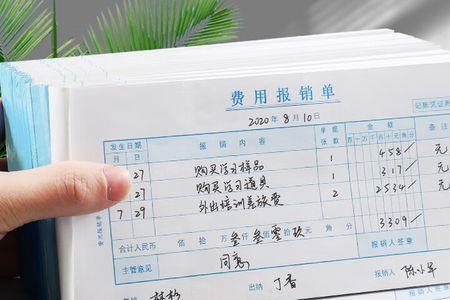 费用报销单
2020年8月10日
记账凭证
发生日期 报销内容 单据张数 金额 备注
月 日 百十万千百十元角分
27 购买学习样品 1 458/ 元
27 购买学习道具 1 317/ 元
7 29 外出培训差旅费 2 2534/ 元
3309/
合计人民币 佰 拾 万 叁仟 叁佰 零拾 玖元 角 分
主管意见 同意 报销人签章
出纳 丁香 报销人 陈小军